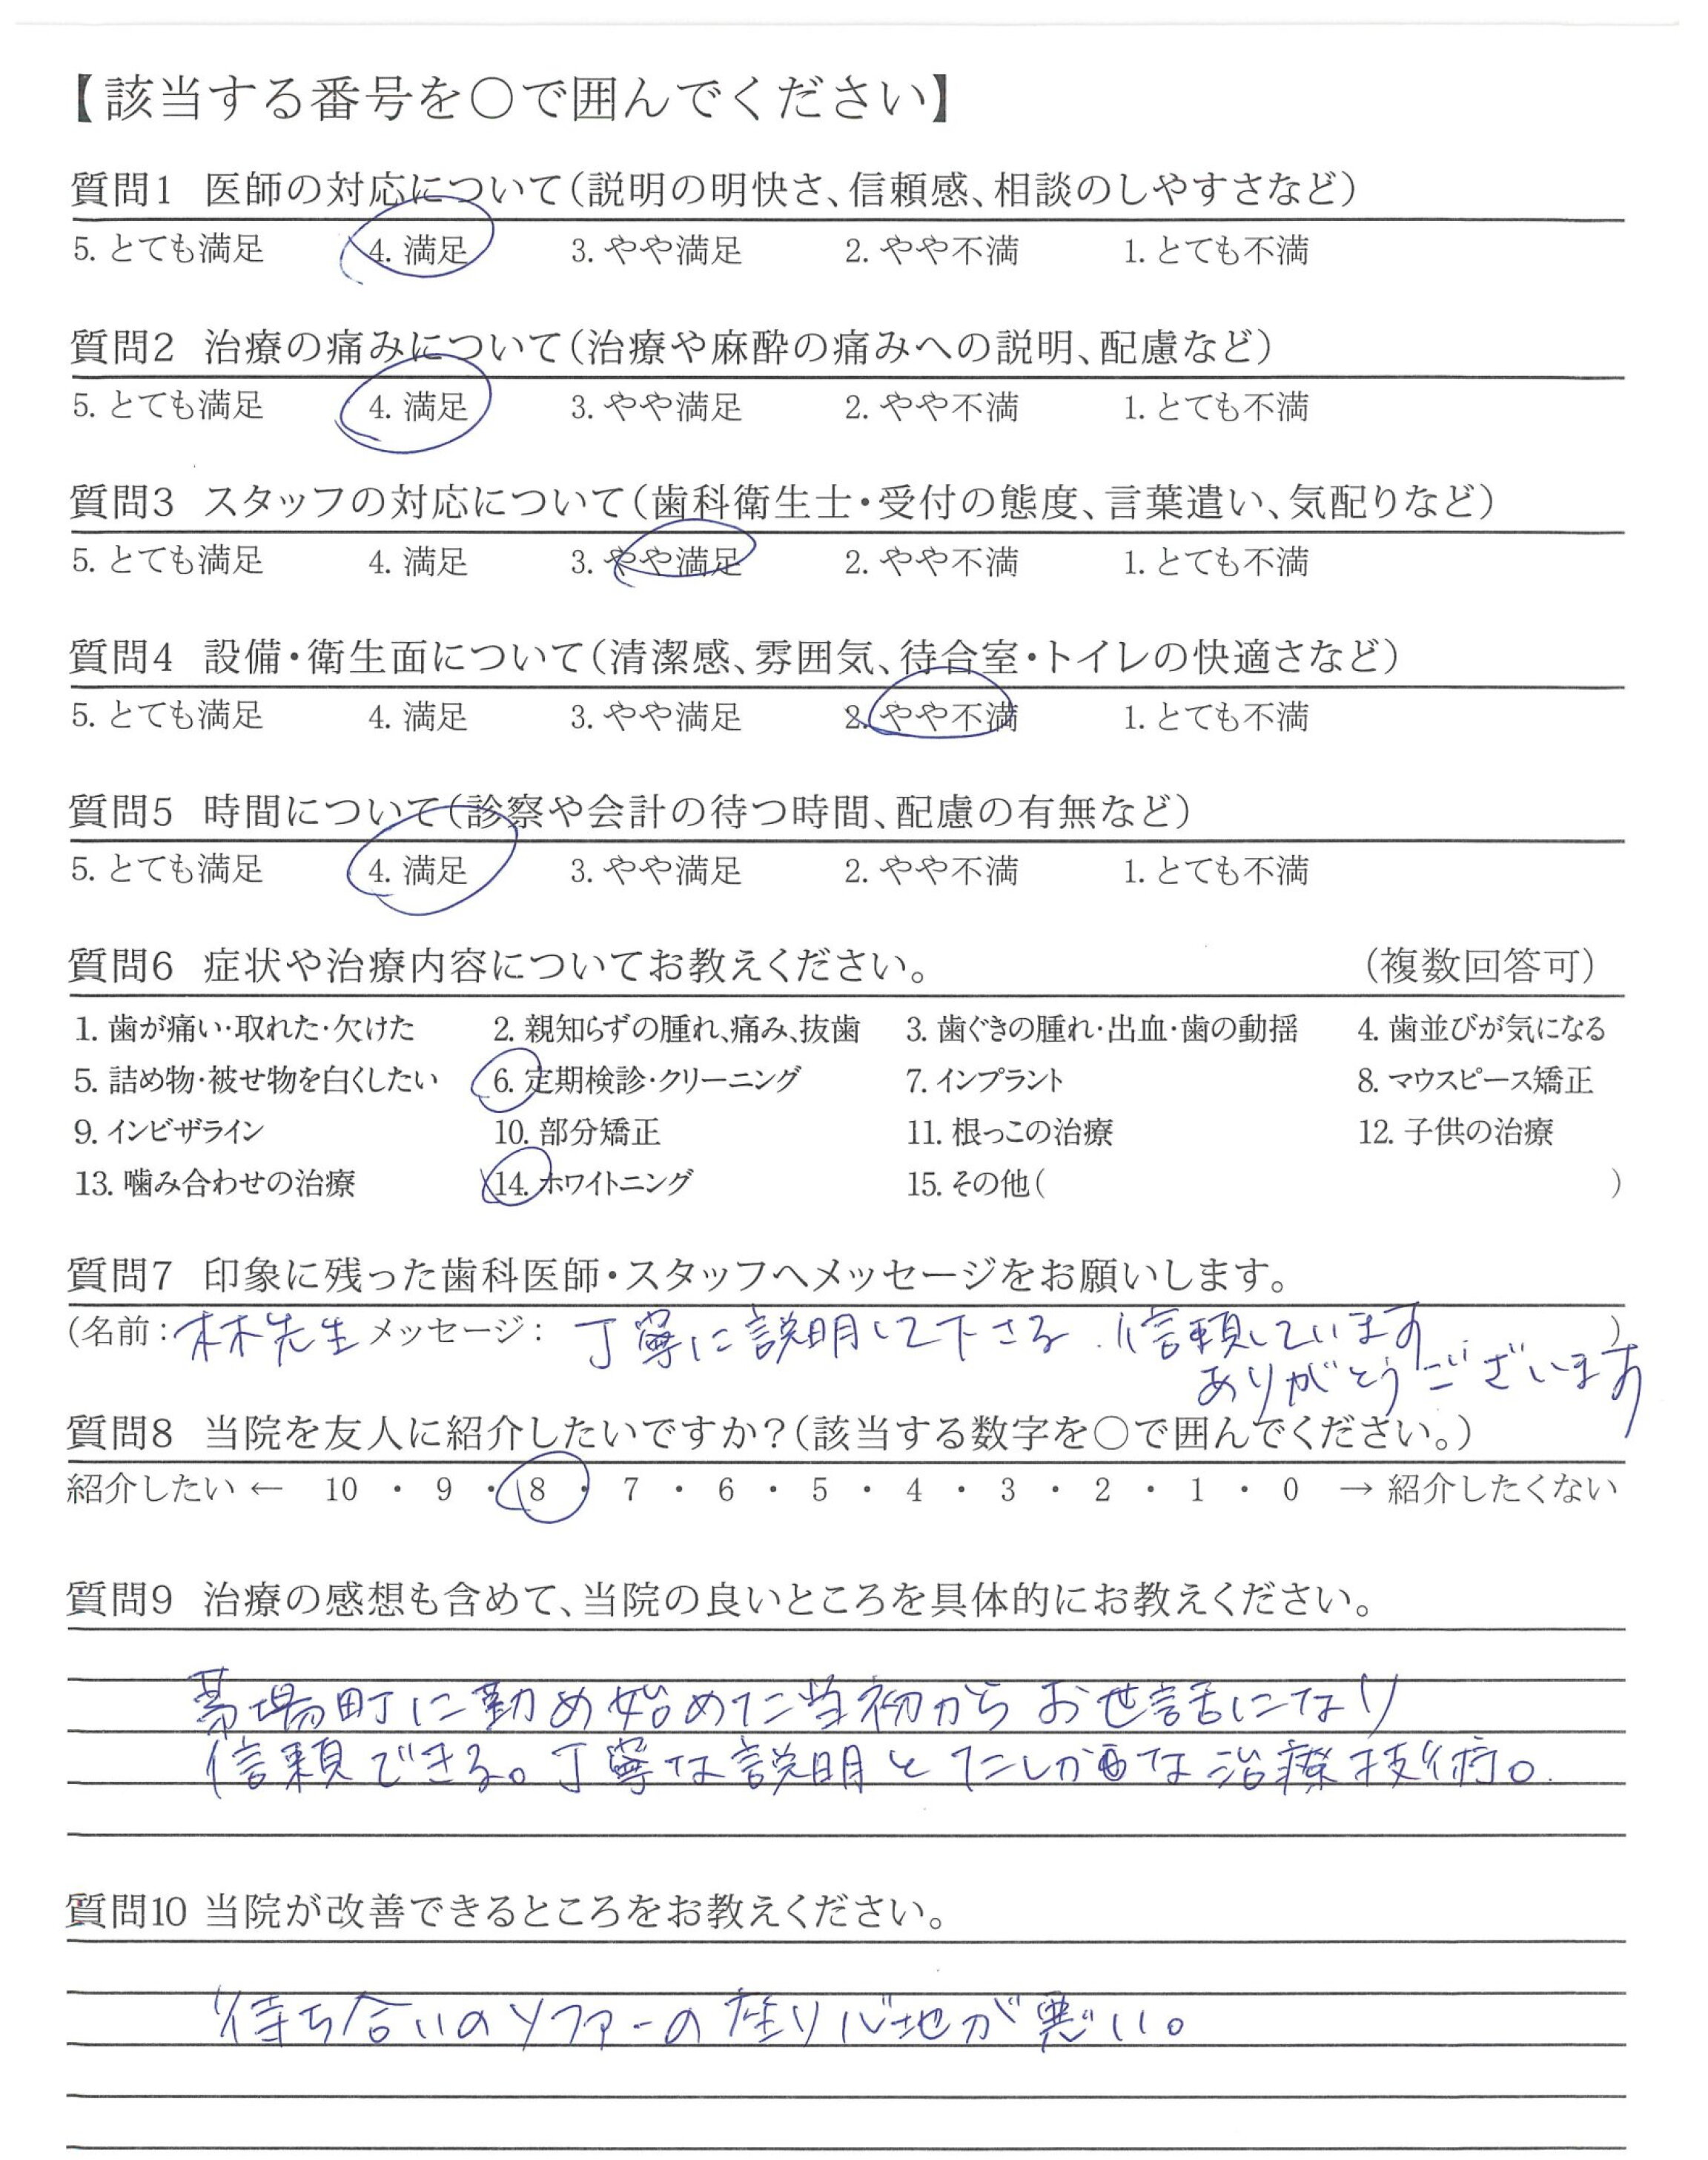 【該当する番号を○で囲んでください】
質問1 医師の対応について(説明の明快さ、信頼感、相談のしやすさなど)
5. とても満足 4. 満足 3. やや満足 2. やや不満 1. とても不満
質問2 治療の痛みについて(治療や麻酔の痛みへの説明、配慮など)
5. とても満足 4. 満足 3. やや満足 2. やや不満 1. とても不満
質問3 スタッフの対応について(歯科衛生士・受付の態度、言葉遣い、気配りなど)
5. とても満足 4. 満足 3. やや満足 2. やや不満 1. とても不満
質問4 設備・衛生面について(清潔感、雰囲気、待合室・トイレの快適さなど)
5. とても満足 4. 満足 3. やや満足 2. やや不満 1. とても不満
質問5 時間について(診察や会計の待つ時間、配慮の有無など)
5. とても満足 4. 満足 3. やや満足 2. やや不満 1. とても不満
質問6 症状や治療内容についてお教えください。 (複数回答可)
1. 歯が痛い・取れた・欠けた 2. 親知らずの腫れ、痛み、抜歯 3. 歯ぐきの腫れ・出血・歯の動揺 4. 歯並びが気になる
5. 詰め物・被せ物を白くしたい 6. 定期検診・クリーニング 7. インプラント 8. マウスピース矯正
9. インビザライン 10. 部分矯正 11. 根っこの治療 12. 子供の治療
13. 噛み合わせの治療 14. ホワイトニング 15. その他( )
質問7 印象に残った歯科医師・スタッフへメッセージをお願いします。
(名前: 林先生 メッセージ: 丁寧に説明して下さる. 信頼しています )
ありがとうございます
質問8 当院を友人に紹介したいですか?(該当する数字を○で囲んでください。)
紹介したい ← 10 ・ 9 ・ 8 ・ 7 ・ 6 ・ 5 ・ 4 ・ 3 ・ 2 ・ 1 ・ 0 → 紹介したくない
質問9 治療の感想も含めて、当院の良いところを具体的にお教えください。
茅場町に勤め始めた当初からお世話になり
信頼できる。丁寧な説明とたしかな治療技術。
質問10 当院が改善できるところをお教えください。
待ち合いのソファーの座り心地が悪い。